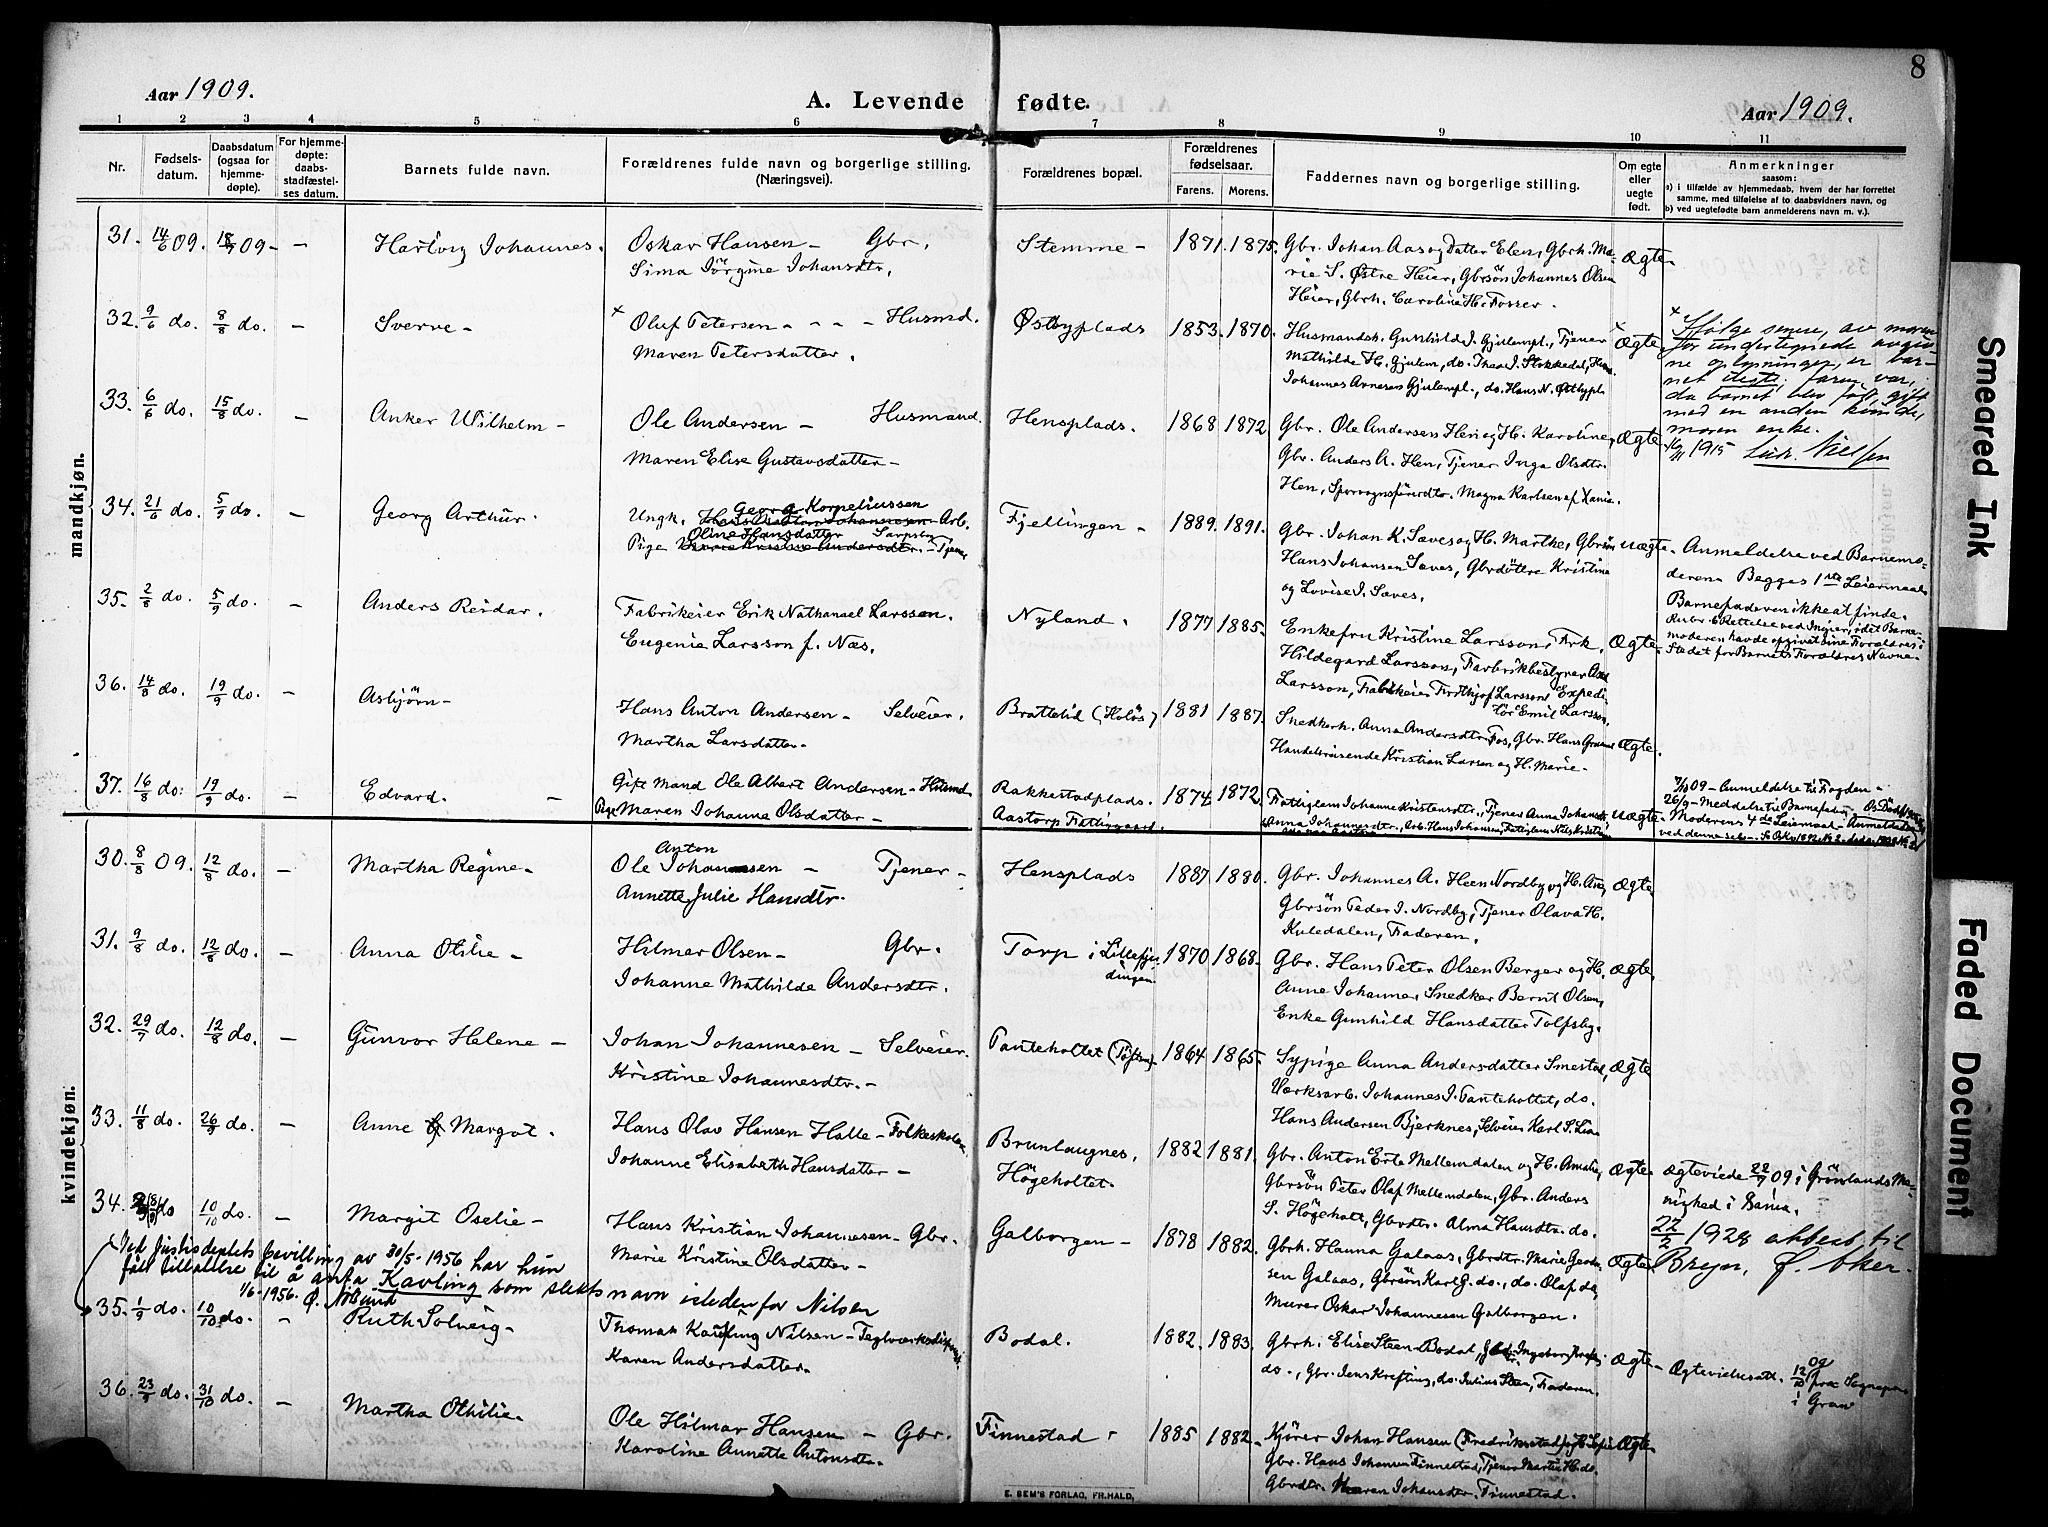 8
Aar 1909.
A. Levende fødte.
Aar 1909.
1 2 3 4 5 6 7 8 9 10 11
Nr.
Fødsels-
datum.
Daabsdatum
(ogsaa for
hjemme-
døpte).
For hjemme-
døpte:
daabs-
stadfæstel-
ses datum.
Barnets fulde navn.
Forældrenes fulde navn og borgerlige stilling.
(Næringsvei).
Forældrenes bopæl.
Forældrenes
fødselsaar.
Farens. Morens.
Faddernes navn og borgerlige stilling.
Om egte
eller
uegte
født.
Anmerkninger
saasom:
a) i tilfælde av hjemmedaab, hvem der har forrettet
samme, med tilføielse af to daabsvidners navn, og
b) ved uegtefødte barn anmelderens navn m. v.).
mandkjøn.
31. 14/6 09. 18/7 09 - - Hartvig Johannes. Oskar Hansen - Gbr. Stemme - 1871. 1875. Gbr. Johan Aas og Datter Elen, Gbrh. Ma-
Sima Jörgine Johansdtr. rie S. Østre Heier, Gbrsön Johannes Olsen Ægte.
Heier, Gbrh. Caroline H. Fosser.
32. 9/6 do. 8/8 do. - Sverre - × Oluf Petersen - - - Husmd. Østbyplads 1853. 1870. Husmandsk. Gunhild I. Gjulempl., Tjener × Ægte.
Maren Petersdatter. Mathilde H. Gjulem, do. Thea I. Stokkedal, Husm.
Johannes Arnesen Gjulempl., do. Hans N. Østbypl.
× Ifølge senere, av moren
for undertegnede avgiv-
ne oplysninger, er bar-
net uegte; faren var,
da barnet blev født, gift
med en anden kvinde,
moren enke.
16/11 1915 Ludv. Nielsen
33. 6/6 do. 15/8 do. - Anker Wilhelm - Ole Andersen - Husmand. Hensplads. 1868 1872 Gbr. Ole Andersen Hen og H. Karoline, Ægte.
Maren Elise Gustavsdatter - Gbr. Anders A. Hen, Tjener Inga Olsdtr.
Hen, Sporvognsförerdtr. Magna Karlsen af Xania.
34. 21/6 do. 5/9 do. - Georg Arthur. Georg Korneliussen
Ungk. Arb. Fjellingen - 1889. 1891. Gbr. Johan K. Saves og H. Marthe, Gbrsön uægte.
Oline Hansdatter Sarpsbg.
Pige Tjener Hans Johansen Saves, Gbrdöttre Kristine
og Lovise I. Saves.
Anmeldelse ved Barnemo-
deren. Begges 1ste Leiermaal.
Barnefaderen ikke at finde.
Rubr. 6 Rettelse ved Ingier, idet Barne-
moderen havde opgivet sine Forældres i
Stedet for Barnets Forældres Navne.
35. 2/8 do. 5/9 do. - Anders Reidar. Fabrikeier Erik Nathanael Larsson. Nyland. 1877 1885. Enkefru Kristine Larsson, Frk. Ægte.
Eugenie Larsson f. Næs. Hildegard Larsson, Farbrikbestyrer Axel
Larsson, Fabrikeier Fridtjof Larsson, Expedi-
tör Emil Larsson.
36. 14/8 do. 19/9 do. - Asbjörn - Hans Anton Andersen - Selveier. Brattelid (Holös) 1881 1887. Snedkerh. Anna Andersdtr. Fos, Gbr. Hans Ægte.
Martha Larsdatter. Handelsreisende Kristian Larsen og H. Marie.
37. 16/8 do. 19/9 do. - Edvard. - Gift Mand Ole Albert Andersen - Husmd. Rakkestadplads. 1874 1872. Fattiglem Johanne Kristensdtr., Tjener Anna Johansdtr. uægte.
Pige Maren Johanne Olsdatter - Aastorp Fattiggaard. Anna Johannesdtr., Arb. Hans Johansen, Fattiglem Nils Kristian
7/10 09 - Anmeldelse til Fogden -
26/9 - Meddelse til Barnefaderen -
Moderens 4de Leiermaal - Anmeldelse
ved denne selv -
kvindekjøn.
30. 8/8 09. 12/8 do. - Martha Regine - Anton
Ole Johannesen - Tjener - Hensplads 1887 1880. Gbr. Johannes A. Heen Nordby og H. Ane, Ægte
Annette Julie Hansdtr. Gbrsön Peder I. Nordby, Tjener Olava H.
Kuledalen, Faderen.
31. 9/8 do. 12/8 do. - Anna Otilie - Hilmar Olsen - Gbr. Torp i Lillefjel- 1870 1868. Gbr. Hans Peter Olsen Berger og H. Ægte.
dingen
Johanne Mathilde Andersdtr. Anne Johanne, Snedker Bernt Olsen,
Enke Gunhild Hansdatter Tolfsby.
32. 29/7 do. 12/8 do. - Gunvor Helene - Johan Johannesen - Selveier. Tanteholtet (Töfte) 1864 1865. Sypige Anna Andersdatter Smestad, Ægte
Kristine Johannesdtr. - Værksarb. Johannes I. Tanteholtet, do.
Hans Andersen Bjerknes, Selveier Karl S. Lian
33. 11/8 do. 26/9 do. - Anne Margot. Hans Olav Hansen Halle - Folkeskolel. Brunlaugnes, 1882 1881. Gbr. Anton Erte Mellemdalen og H. Amalie, Ægte.
Johanne Elisabeth Hansdatter - Högeholtet. Gbrsön Peter Olaf Mellemdalen, Gbr. Anders
S. Högeholt, Gbrdtr. Alma Hansdtr. do.
Ægteviede 22/7 09 i Grönlands Me-
nighed i Xania.
34. do 10/10 do. - Margit Oselie - Hans Kristian Johannesen - Gbr. Galborgen - 1878 1882. Gbrh. Hanna Galaas, Gbrdtr. Marie Ægte.
Marie Kristine Olsdatter - sen Galaas, Gbrsön Karl G. do., do. Olaf do,
Murer Oskar Johannesen Galborgen.
22/2 1928 attest til
Bryn, Ø. Aker.
Ved Justisdep.tets bevilling av 30/5-1956 har hun
fått tillatelse til å anta Kavling som slektsnavn istedenfor Nilsen
1/6-1956.
35. 1/9 do. 10/10 do. - Ruth Solveig - Thomas Kavling Nilsen - Teglværksdisponent. Bodal. 1882. 1883. Gbrh. Elise Steen Bodal, Ingeborg Krefting Ægte -
Karen Andersdatter. do., Gbr. Jens Krefting, do. Julius Steen, Faderen.
Ægtevidsatt. 12/10 09 fra Sognepr.
i Grav
36. 23/9 do. 31/10 do. - Martha Othilie. Ole Hilmar Hansen - Gbr. Finnestad - 1885 1882. Kjörer Johan Hansen (Fredrikstad) og H. Sofie Ægte
Karoline Annette Antonsdtr. Gbr. Hans Johansen Finnestad, Tjener Martin H. do.
Gbrdtr. Maren Johansdtr. Finnestad.
E. SEM'S FORLAG, FR.HALD.
Smeared Ink
Faded Document